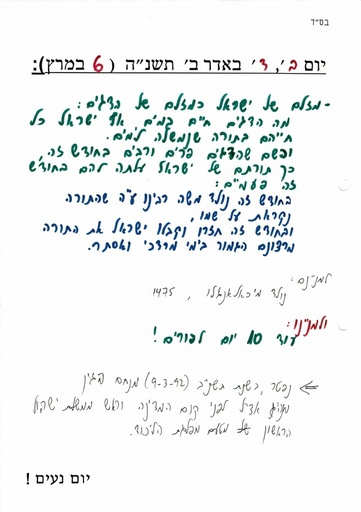 בס"ד
יום ב', ד' באדר ב' תשנ"ה (6 במרץ):
- מזלם של ישראל כמזלם של הדגים:
מה הדגים חיים במים, אף ישראל כל
חייהם בתורה שנמשלה למים.
וכשם שהדגים פרים ורבים בחודש זה,
כך תורתם של ישראל עלתה להם בחודש
זה פעמיים:
בחודש זה נולד משה רבינו ע"ה שהתורה
נקראת על שמו,
ובחודש זה חזרו וקבלו ישראל את התורה
מרצונם הגמור בימי מרדכי ואסתר.
למנינם:
נולד מיכאלאנג'לו, 1475
ולמנינו:
עוד 10 יום לפורים!
נפטר, בשנת תשנ"ב (9-3-92) מנחם בגין
מנהיג אצ"ל לפני קום המדינה וראש ממשלת ישראל
הראשון מטעם מפלגת הליכוד.
יום נעים!